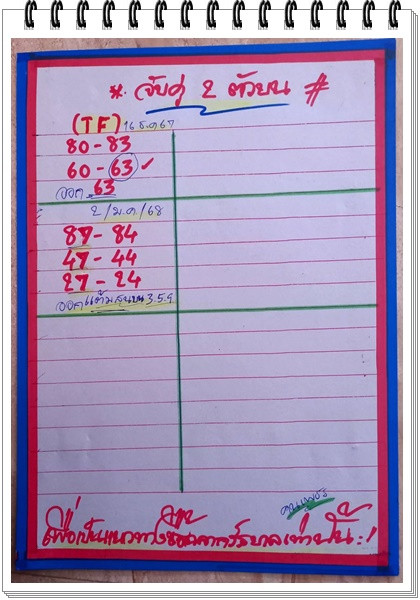 * จับคู่ 2 ตัวบน #
(TF) 16 ธ.ค 67
80 - 83
60 - 63 ✓
ออก 63
2/ม.ค./68
87 - 84
47 - 44
27 - 24
ออกแต้ม บน 3.5.9
เพื่อเป็นแนวทางซื้อสลากรัฐบาลเท่านั้น.!